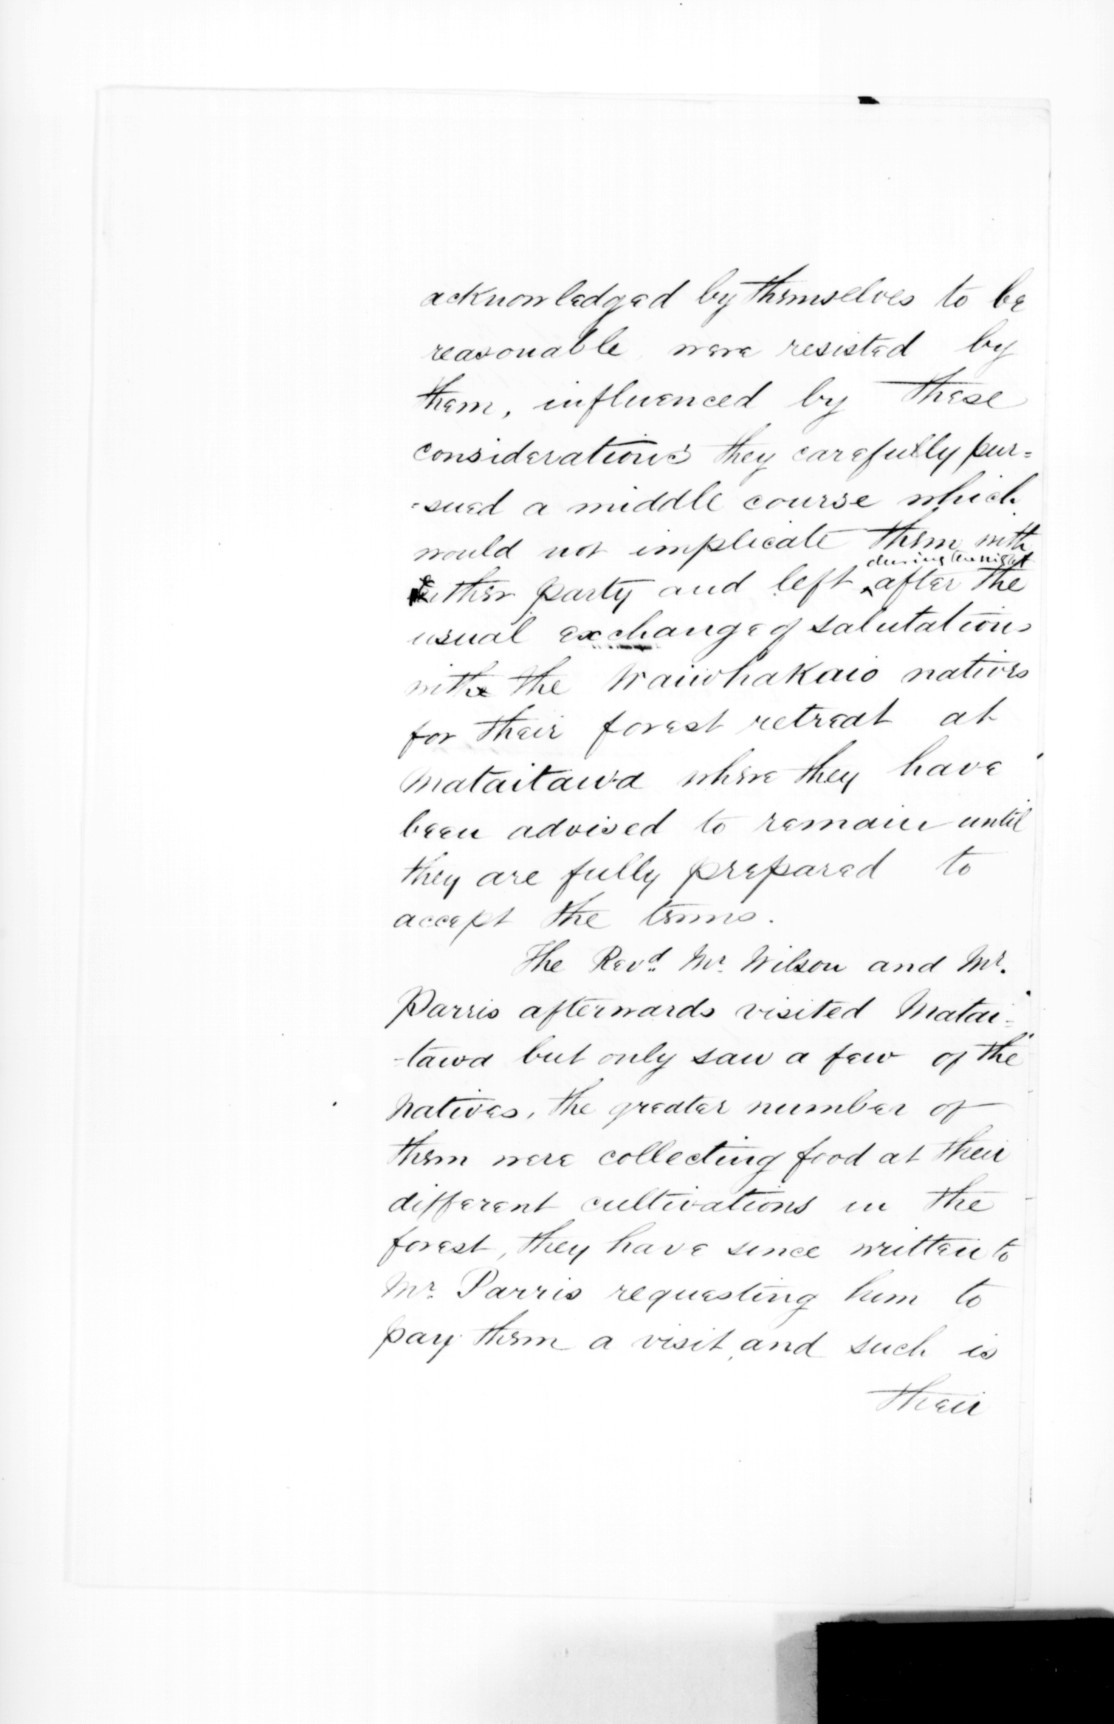 acknowledged by themselves to be
reasonable were resisted by
them, influenced by these
considerations they carefully pur=
-sued a middle course which
would not implicate them with
during the night
either party and left ^ after the
usual exchange of salutations
with the Waiwhakaio natives
for their forest retreat at
Mataitawa where they have
been advised to remain until
they are fully prepared to
accept the terms.
The Revd. Mr. Wilson and Mr.
Parris afterwards visited Matai=
-tawa but only saw a few of the
Natives, the greater number of
them were collecting food at their
different cultivations in the
forest, they have since written to
Mr. Parris requesting him to
pay them a visit, and such is
their